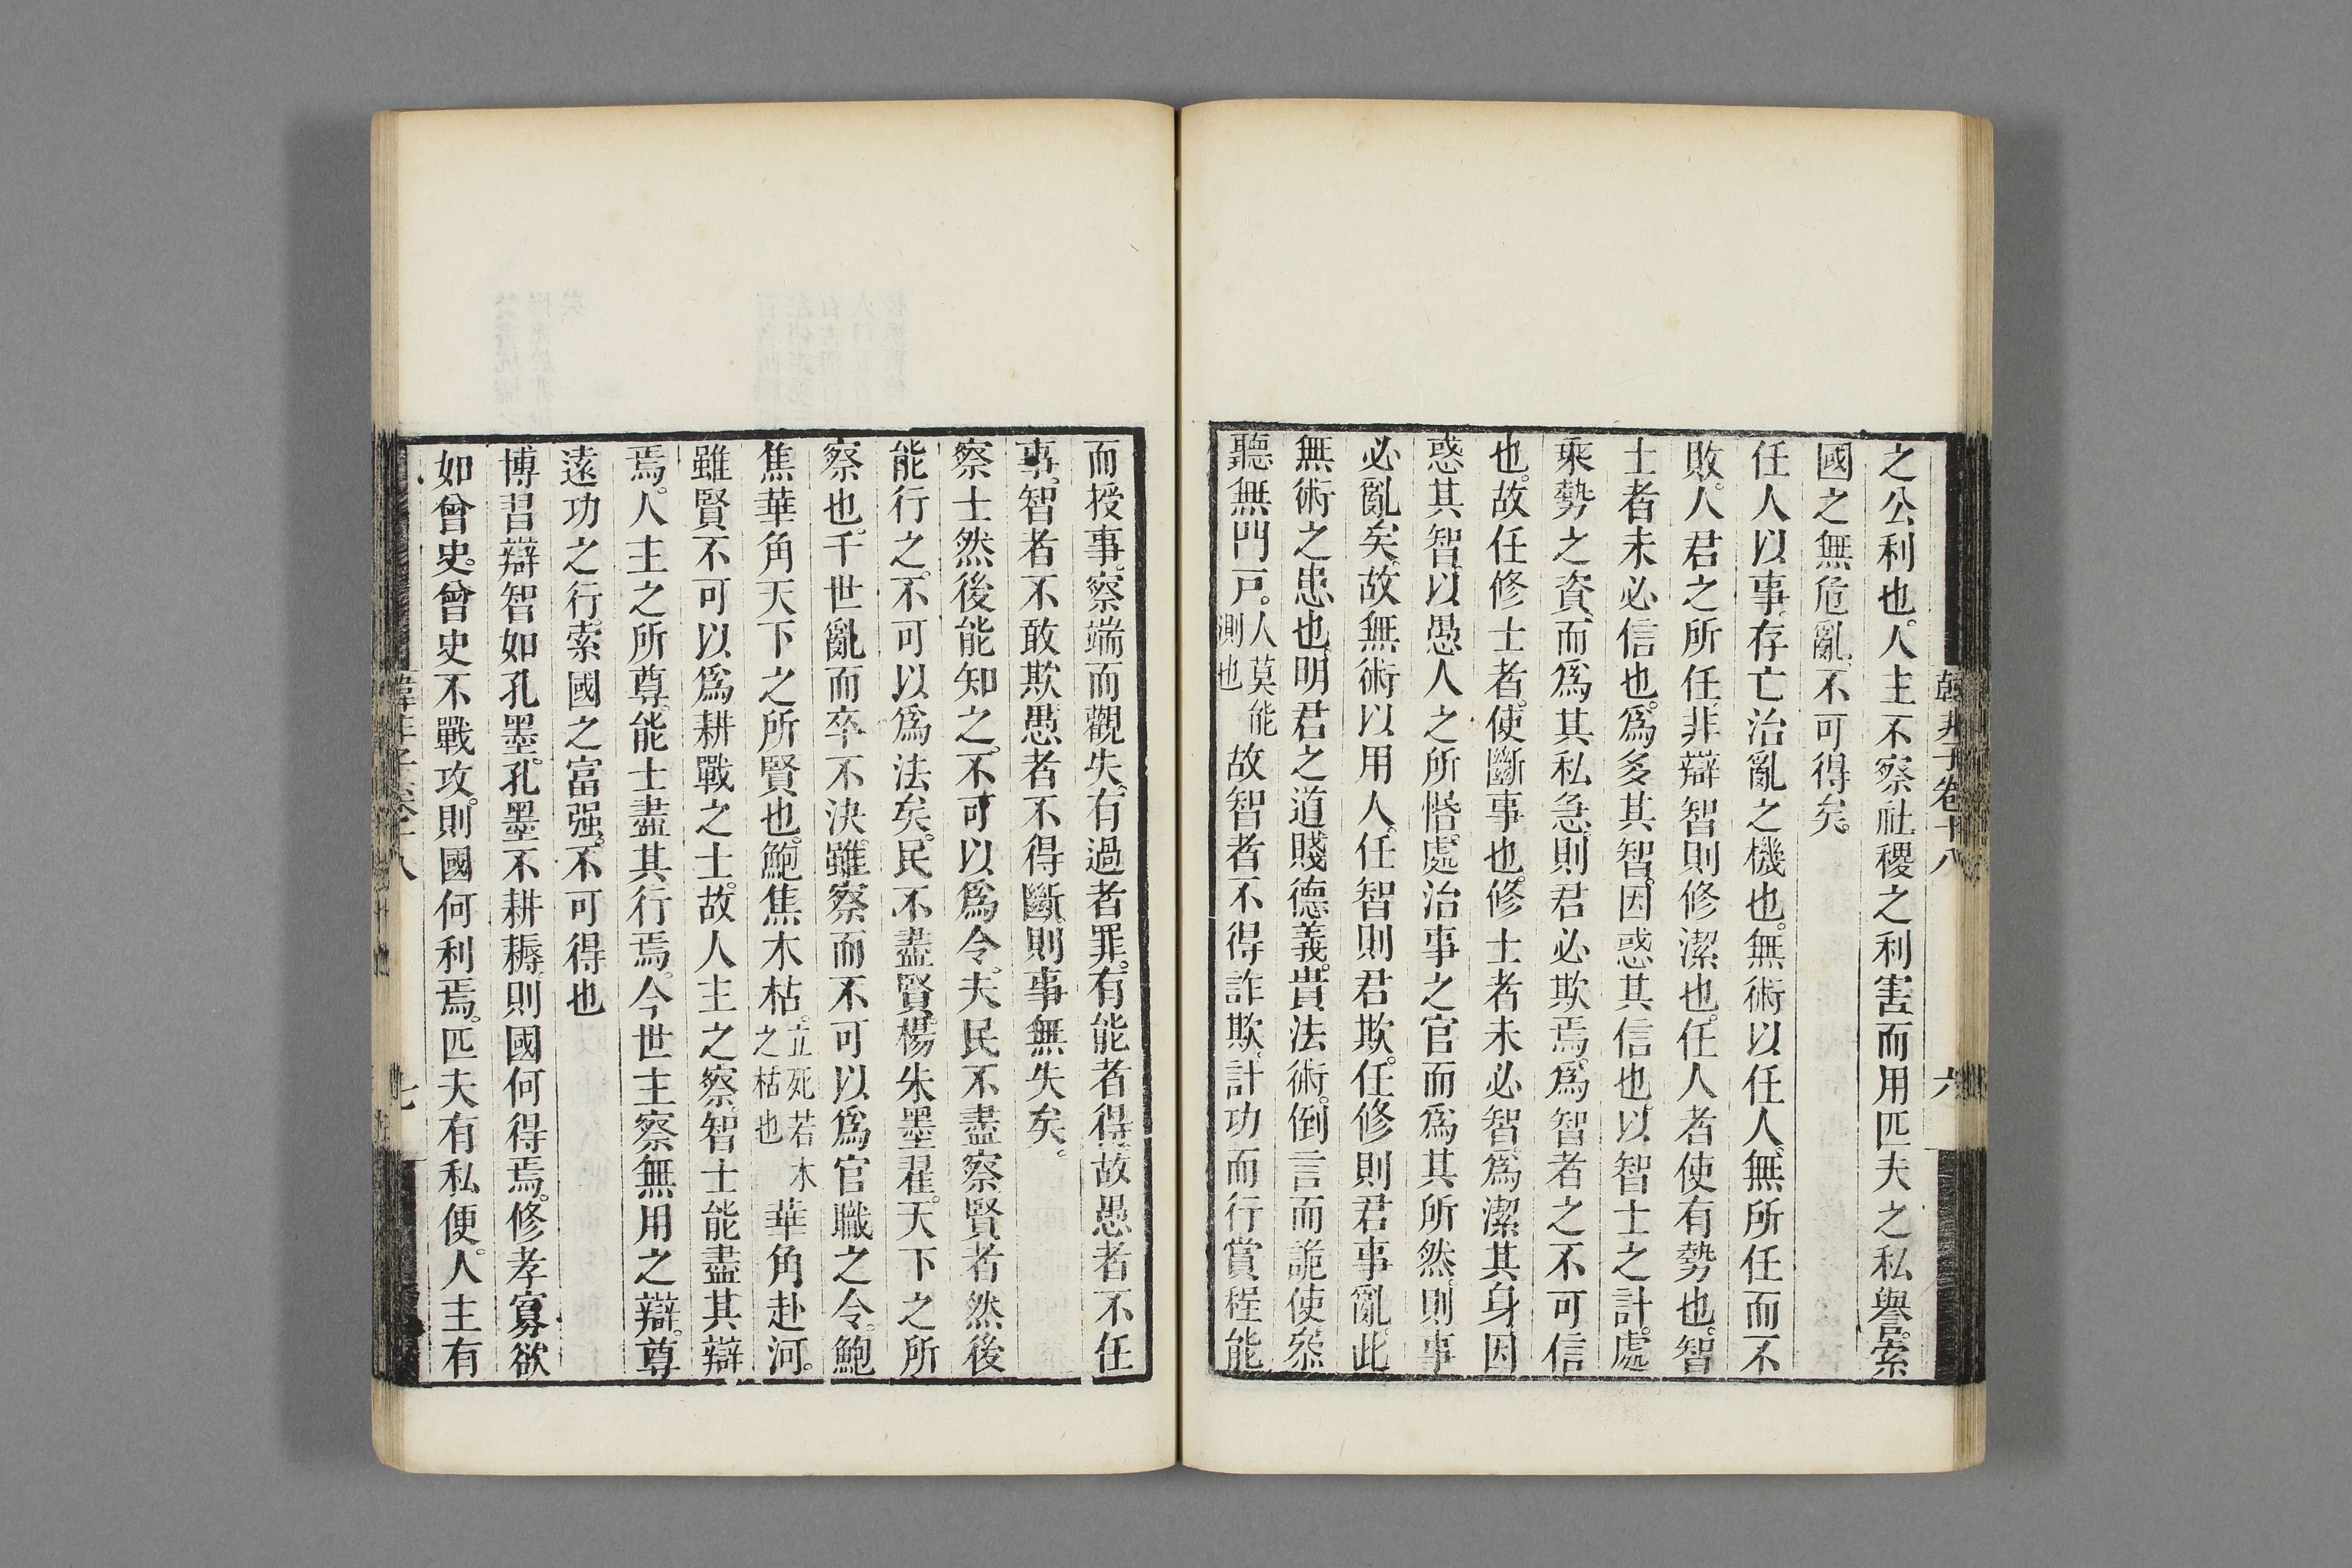 韓非子卷十八
六
之公利也。人主不察社稷之利害而用匹夫之私譽。索
國之無危亂。不可得矣。
任人以事。存亡治亂之機也。無術以任人。無所任而不
敗。人君之所任。非辯智則修潔也。任人者使有勢也。智
士者未必信也。爲多其智。因惑其信也。以智士之計。處
乘勢之資。而爲其私急。則君必欺焉。爲智者之不可信
也。故任修士者。使斷事也。修士者未必智。爲潔其身。因
惑其智。以愚人之所惛。處治事之官而爲其所然。則事
必亂矣。故無術以用人。任智則君欺。任修則君事亂。此
無術之患也。明君之道。賤德義。貴法術。倒言而詭使。叅
聽無門戸。人莫能測也故智者不得詐欺。計功而行賞。程能
而授事。察端而觀失。有過者罪。有能者得。故愚者不任
事。智者不敢欺。愚者不得斷。則事無失矣。
察士然後能知之。不可以爲令。夫民不盡察。賢者然後
能行之。不可以爲法矣。民不盡賢。楊朱墨翟。天下之所
察也。千世亂而卒不決。雖察而不可以爲官職之令。鮑
焦華角天下之所賢也。鮑焦木枯。立死若木之枯也華角赴河。
雖賢不可以爲耕戰之士。故人主之察。智士能盡其辯
焉。人主之所尊。能士盡其行焉。今世主察無用之辯。尊
遠功之行。索國之富强。不可得也
博習辯智如孔墨。孔墨不耕耨。則國何得焉。修孝寡欲
如曾史。曾史不戰攻。則國何利焉。匹夫有私便。人主有
韓非子卷十八
七